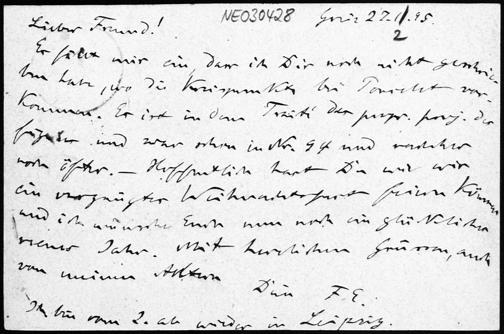 NEO30428
Lieber Freund! Greiz 27.12.95.
Es fällt mir ein, dass ich Dir noch nicht geschrie-
ben habe, wo die Kreispunkte bei Poncelet vor-
kommen. Es ist in dem Traité des propr. proj. des
figures und zwar schon in Nr. 94 und nachher
noch öfter. — Hoffentlich hast Du wie wir
ein vergnügtes Weihnachtsfest feiern können
und ich wünsche Euch nun noch ein glückliches
neues Jahr. Mit herzlichen Grüssen, auch
von meinen Eltern
Dein F. E.
Ich bin vom 2. ab wieder in Leipzig.